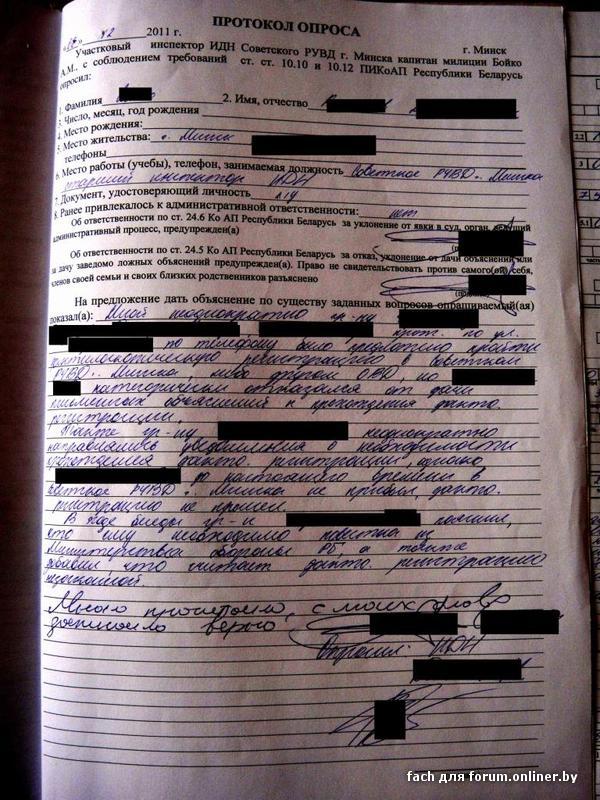 ПРОТОКОЛ ОПРОСА
2011 г.
г. Минск
Участковый инспектор ИДН Советского РУВД г. Минска капитан милиции Бойко
А.М., с соблюдением требований ст. ст. 10.10 и 10.12 ПИКоАП Республики Беларусь
опросил:
1. Фамилия 2. Имя, отчество
3. Число, месяц, год рождения
4. Место рождения:
5. Место жительства: г. Минск
телефоны
6. Место работы (учебы), телефон, занимаемая должность Советское РУВД г. Минска
старший инспектор ИДН
7. Документ, удостоверяющий личность
8. Ранее привлекалось к административной ответственности: нет
Об ответственности по ст. 24.6 Ко АП Республики Беларусь за уклонение от явки в суд, орган, ведущий
административный процесс, предупрежден(а)
Об ответственности по ст. 24.5 Ко АП Республики Беларусь за отказ, уклонение от дачи объяснений или
за дачу заведомо ложных объяснений предупрежден(а). Право не свидетельствовать против самого(ой) себя,
членов своей семьи и своих близких родственников разъяснено
На предложение дать объяснение по существу заданных вопросов опрашиваемый(ая)
показал(а): Мной неоднократно гр-ну
по ул.
по телефону было предложено пройти
дактилоскопическую регистрацию в Советском
РУВД г. Минска либо другом ОВД но
категорически отказался от дачи
письменных объяснений и прохождения дакто.
регистрации.
Также гр-ну неоднократно
направлялись уведомления о необходимости
прохождения дакто. регистрации, однако
до настоящего времени в
Советское РУВД г. Минска не прибыл, дакто.
регистрацию не прошел.
В ходе беседы гр-н пояснил,
что ему необходимо
Министерства обороны РБ, а также
что считает дакто. регистрацию
незаконной.
Мною прочитано, с моих слов
записано верно
Опросил: ИДН
fach для forum.onliner.by